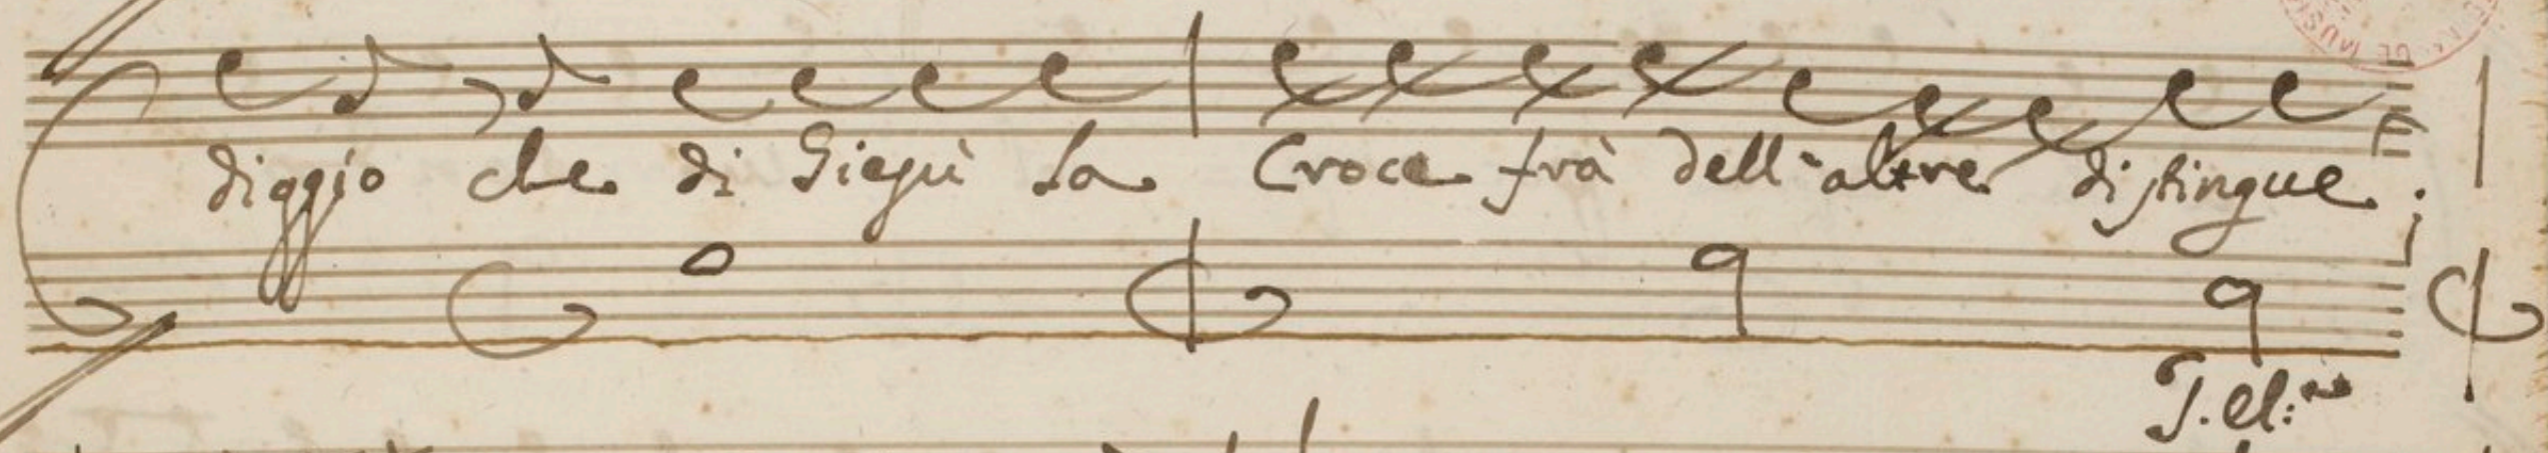 diggio che di Giesù la Croce frà dell'altre distingue;